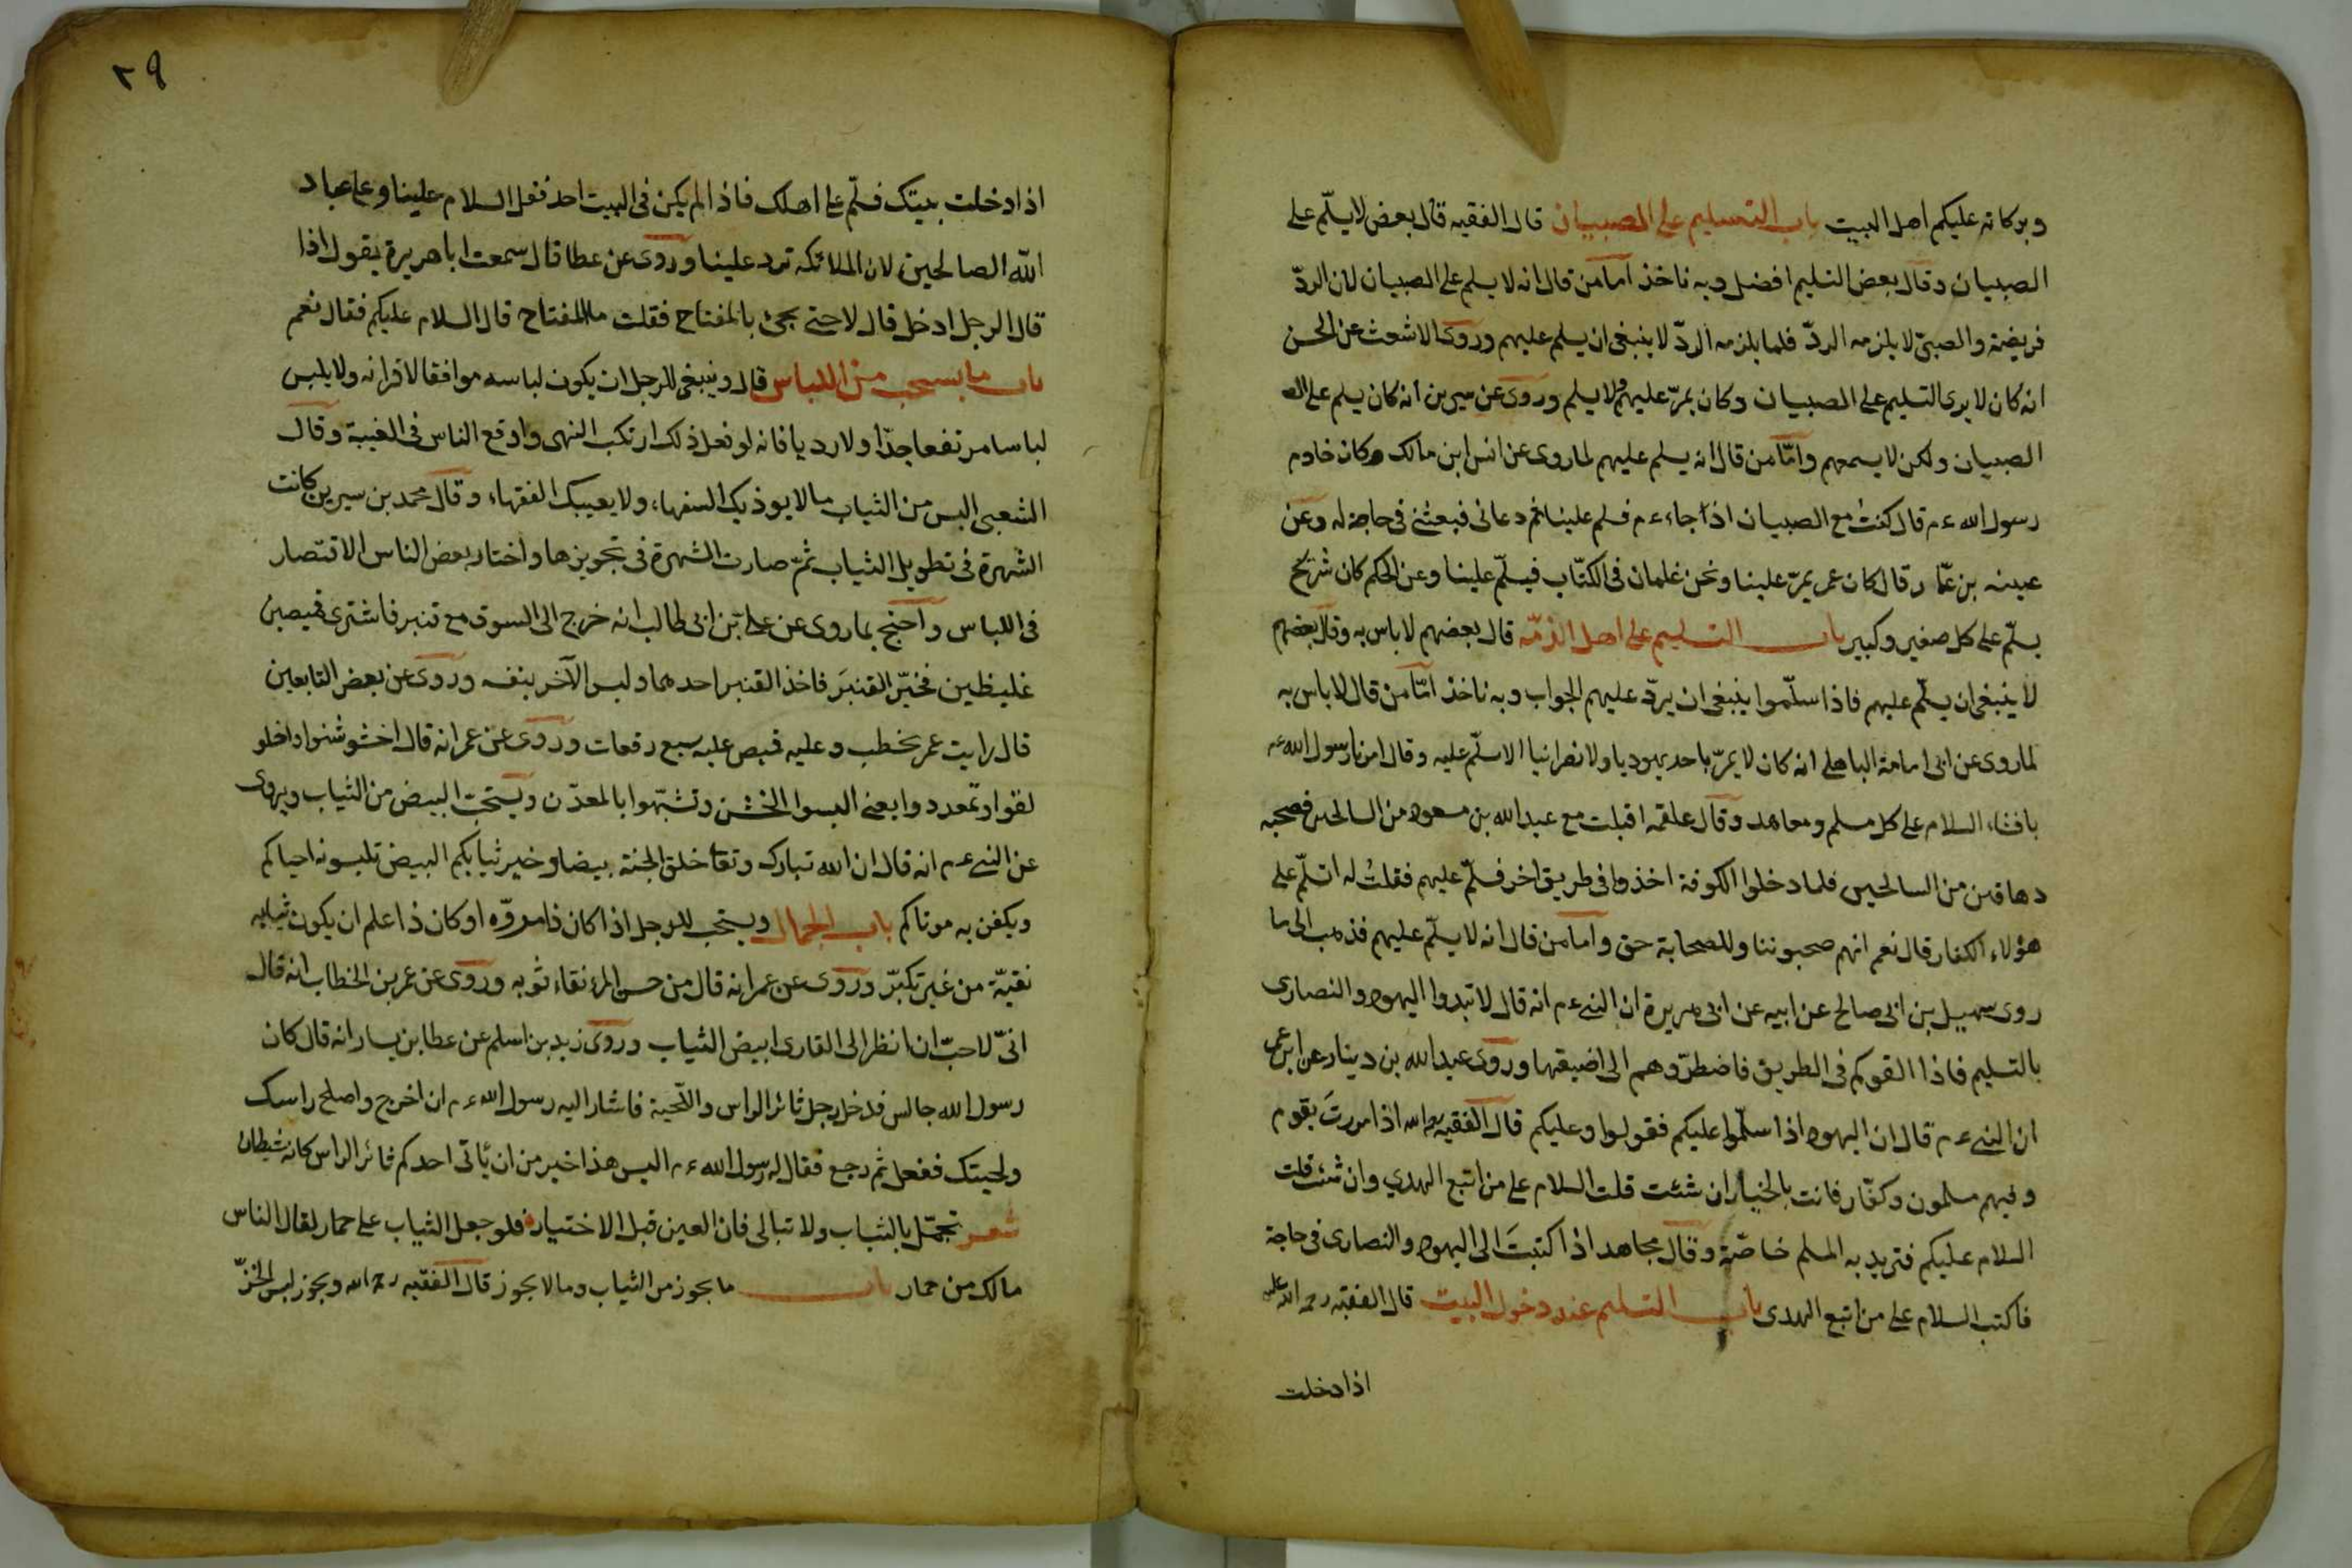 وبركاته عليكم اهل البيت باب التسليم على الصبيان قال الفقيه قال بعض لا يسلّم على
الصبيان وقال بعض التسليم افضل وبه ناخذ اما من قال انه لا يسلم على الصبيان لان الردّ
فريضة والصبىّ لا يلزمه الردّ فلما يلزمه الردّ لا ينبغى ان يسلم عليهم وروى الاشعث عن الحسن
انه كان لا يرى التسليم على الصبيان وكان يمرّ عليهم ولا يسلم وروى عن سيرين انه كان يسلم على الص
الصبيان ولكن لا يسمعهم وامّا من قال انه يسلم عليهم لما روى عن انس ابن مالك وكان خادم
رسول الله ءم قال كنتُ مع الصبيان اذا جاء ءم فسلم علينا ثم دعانى فبعثنى فى حاجة له وعن
عينه بن عمّار قال كان عمر يمرّ علينا ونحن غلمان فى الكتّاب فيسلّم علينا وعن الحكم كان شريح
يسلّم على كل صغير وكبير باب التسليم على اهل الذمّة قال بعضهم لا باس به وقال بعضهم
لا ينبغى ان يسلّم عليهم فاذا سلّموا ينبغى ان يردّ عليهم الجواب وبه ناخذ امّا من قال لا باس به
لما روى عن ابى امامة الباهلى انه كان لا يمرّ باحد يهوديا ولا نصرانيا الا سلّم عليه وقال امرنا رسول الله ءم
بافشاء السلام على كل مسلم ومعاهد وقال علقمه اقبلت مع عبد الله بن مسعود من السالحين فصحبه
دهاقين من السالحين فلما دخلوا الكوفة اخذوا فى طريق اخر فسلّم عليهم فقلتُ له اتسلّم على
هؤلاء الكفار قال نعم انهم صحبوننا وللصحابة حق واما من قال انه لا يسلّم عليهم فذهب الى ما
روى سهيل بن ابى صالح عن ابيه عن ابى هريرة ان النبى ءم انه قال لا تبدوا اليهود والنصارى
بالتسليم فاذا القوكم فى الطريق فاضطرّوهم الى اضيقها وروى عبد الله بن دينار عن ابن عمر
ان النبى ءم قال ان اليهود اذا سلّموا عليكم فقولوا وعليكم قال الفقيه رحمه الله اذا مررتَ بقوم
وفيهم مسلمون وكفّار فانت بالخيار ان شئت قلت السلام على من اتبع الهدي وان شئت قلت
السلام عليكم فتريد به المسلم خاصّة وقال مجاهد اذا كتبتَ الى اليهود والنصارى فى حاجة
فاكتب السلام على من اتبع الهدى باب التسليم عند دخول البيت قال الفقيه رحمة الله عليه
اذا دخلت
٢٩
اذا دخلت بيتك فسلّم على اهلك فاذا لم يكن فى البيت احد فقل السلام علينا وعلى عباد
الله الصالحين لان الملائكه ترد علينا وروى عن عطا قال سمعت ابا هريرة يقول اذا
قال الرجل ادخل قال لا حتى يجئ بالمفتاح فقلت ما المفتاح قال السلام عليكم فقال نعم
باب ما يستحب من اللباس قال وينبغى للرجل ان يكون لباسه موافقا لاقرانه ولا يلبس
لباسا مرتفعا جدّا ولا رديا فانه لو فعل ذلك ارتكب النهى واوقع الناس فى الغيبة وقال
الشعبى البس من الثياب ما لا يوذيك السفهاء ولا يعيبك الفقهاء وقال محمد بن سيرين كانت
الشهرة فى تطويل الثياب ثمّ صارت الشهرة فى تجويزها واختار بعض الناس الاقتصار
فى اللباس واحتج بما روى عن علىّ بن ابى طالب انه خرج الى السوق مع قنبر فاشترى قميصين
غليظين فخيّر القنبرَ فاخذ القنبر احدهما ولبس الآخر بنفسه وروى عن بعض التابعين
قال رايت عمر يخطب وعليه قميص عليه سبع رقعات وروى عن عمر انه قال اخشوشنوا واخلو
لقوا وتمعددوا يعنى البسوا الخشن وتشبّهوا بالمعدّ ن ويستحبّ البيض من الثياب ويروى
عن النبى ءم انه قال ان الله تبارك وتعا خلق الجنة بيضا وخير ثيابكم البيض تلبسونه احياكم
ويكفن به موتاكم باب الجمال ويستحب للرجل اذا كان ذا مروّه او كان ذا علم ان يكون ثيابه
نقيّة من غير تكبّر وروى عن عمر انه قال من حسن المرء نقاء ثوبه وروى عن عمر بن الخطاب انه قال
انىّ لاحبّ ان انظر الى القارى ابيض الثياب وروى زيد بن اسلم عن عطا بن يسار انه قال كان
رسول الله جالس فدخل رجل ثائر الراس واللّحية فاشار اليه رسول الله ءم ان اخرج واصلح راسك
ولحيتك ففعل ثم رجع فقال له رسول الله ءم اليس هذا خير من ان يأتى احدكم ثائر الراس كانه شيطان
شعر تجمّل بالثياب ولا تبالى فان العين قبل الاختيار فلو جعل الثياب على حمار لقال الناس
مالك من حمار باب ما يجوز من الثياب وما لا يجوز قال الفقيه رحمه الله ويجوز لبس الخزّ